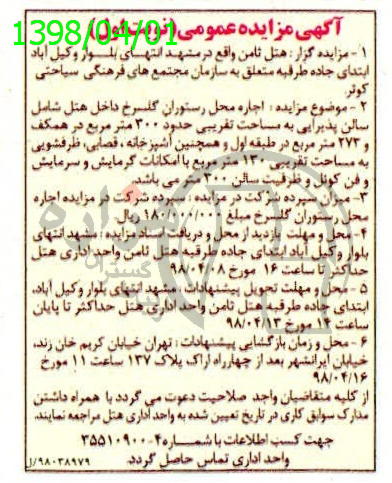 آگهی مزایده عمومی (نوبت اول)
1398/04/01
۱ - مزایده گزار : هتل ثامن واقع در مشهد انتهای بلوار وکیل آباد
ابتدای جاده طرقبه متعلق به سازمان مجتمع های فرهنگی سیاحتی
کوثر
۲ - موضوع مزایده : اجاره محل رستوران گلسرخ داخل هتل شامل
سالن پذیرایی به مساحت تقریبی حدود ۳۰۰ متر مربع در همکف
و ۲۷۳ متر مربع در طبقه اول و همچنین آشپزخانه ، قصابی، ظرفشویی
به مساحت تقریبی ۱۳۰ متر مربع با امکانات گرمایش و سرمایش
و فن کوئل و ظرفیت سالن ۳۰۰ نفر می باشد.
۳ - میزان سپرده شرکت در مزایده : سپرده شرکت در مزایده اجاره
محل رستوران گلسرخ مبلغ ۱۸۰/۰۰۰/۰۰۰ ریال
۴ - محل و مهلت بازدید از محل و دریافت اسناد مزایده : مشهد انتهای
بلوار وکیل آباد ابتدای جاده طرقبه هتل ثامن واحد اداری هتل
حداکثر تا ساعت ۱۶ مورخ ۹۸/۰۴/۰۸
۵ - محل و مهلت تحویل پیشنهادات : مشهد انتهای بلوار وکیل آباد،
ابتدای جاده طرقبه هتل ثامن واحد اداری هتل حداکثر تا پایان
ساعت ۱۴ مورخ ۹۸/۰۴/۱۳
۶ - محل و زمان بازگشایی پیشنهادات : تهران خیابان کریم خان زند،
خیابان ایرانشهر بعد از چهارراه اراک پلاک ۱۳۷ ساعت ۱۱ مورخ
۹۸/۰۴/۱۶
از کلیه متقاضیان واجد صلاحیت دعوت می گردد با همراه داشتن
مدارک سوابق کاری در تاریخ تعیین شده به واحد اداری هتل مراجعه نمایند.
جهت کسب اطلاعات با شماره ۴-۳۵۵۱۰۹۰۰
واحد اداری تماس حاصل گردد.
۹۸۰۳۸۹۷۹/ل